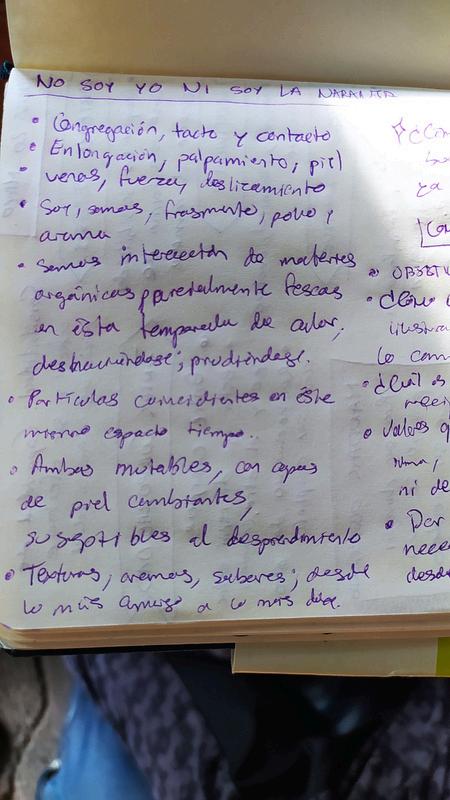 NO SOY YO NI SOY LA NARANJA
• Congregación, tacto y contacto
• Enlongación, palpamiento, piel
• venas, fuerza, deslizamiento
• Soy, somos, fragmento, polvo,
aroma
• Somos intersección de materies
orgánicas parcialmente frescas
en ésta temporada de calor,
deshaciéndose; prudriéndose.
• Partículas coincidentes en éste
mismo espacio tiempo.
• Ambas mutables, con capas
de piel cambiantes,
suseptibles al desprendimiento
• Texturas, aromas, saberes; desde
lo más amargo a lo más
¿Cóm
• OBJETIV
• ¿Cómo
ilustra
lo com
• ¿Cuál es
neci
• Valores q
ni de
• Dar
nece
desd